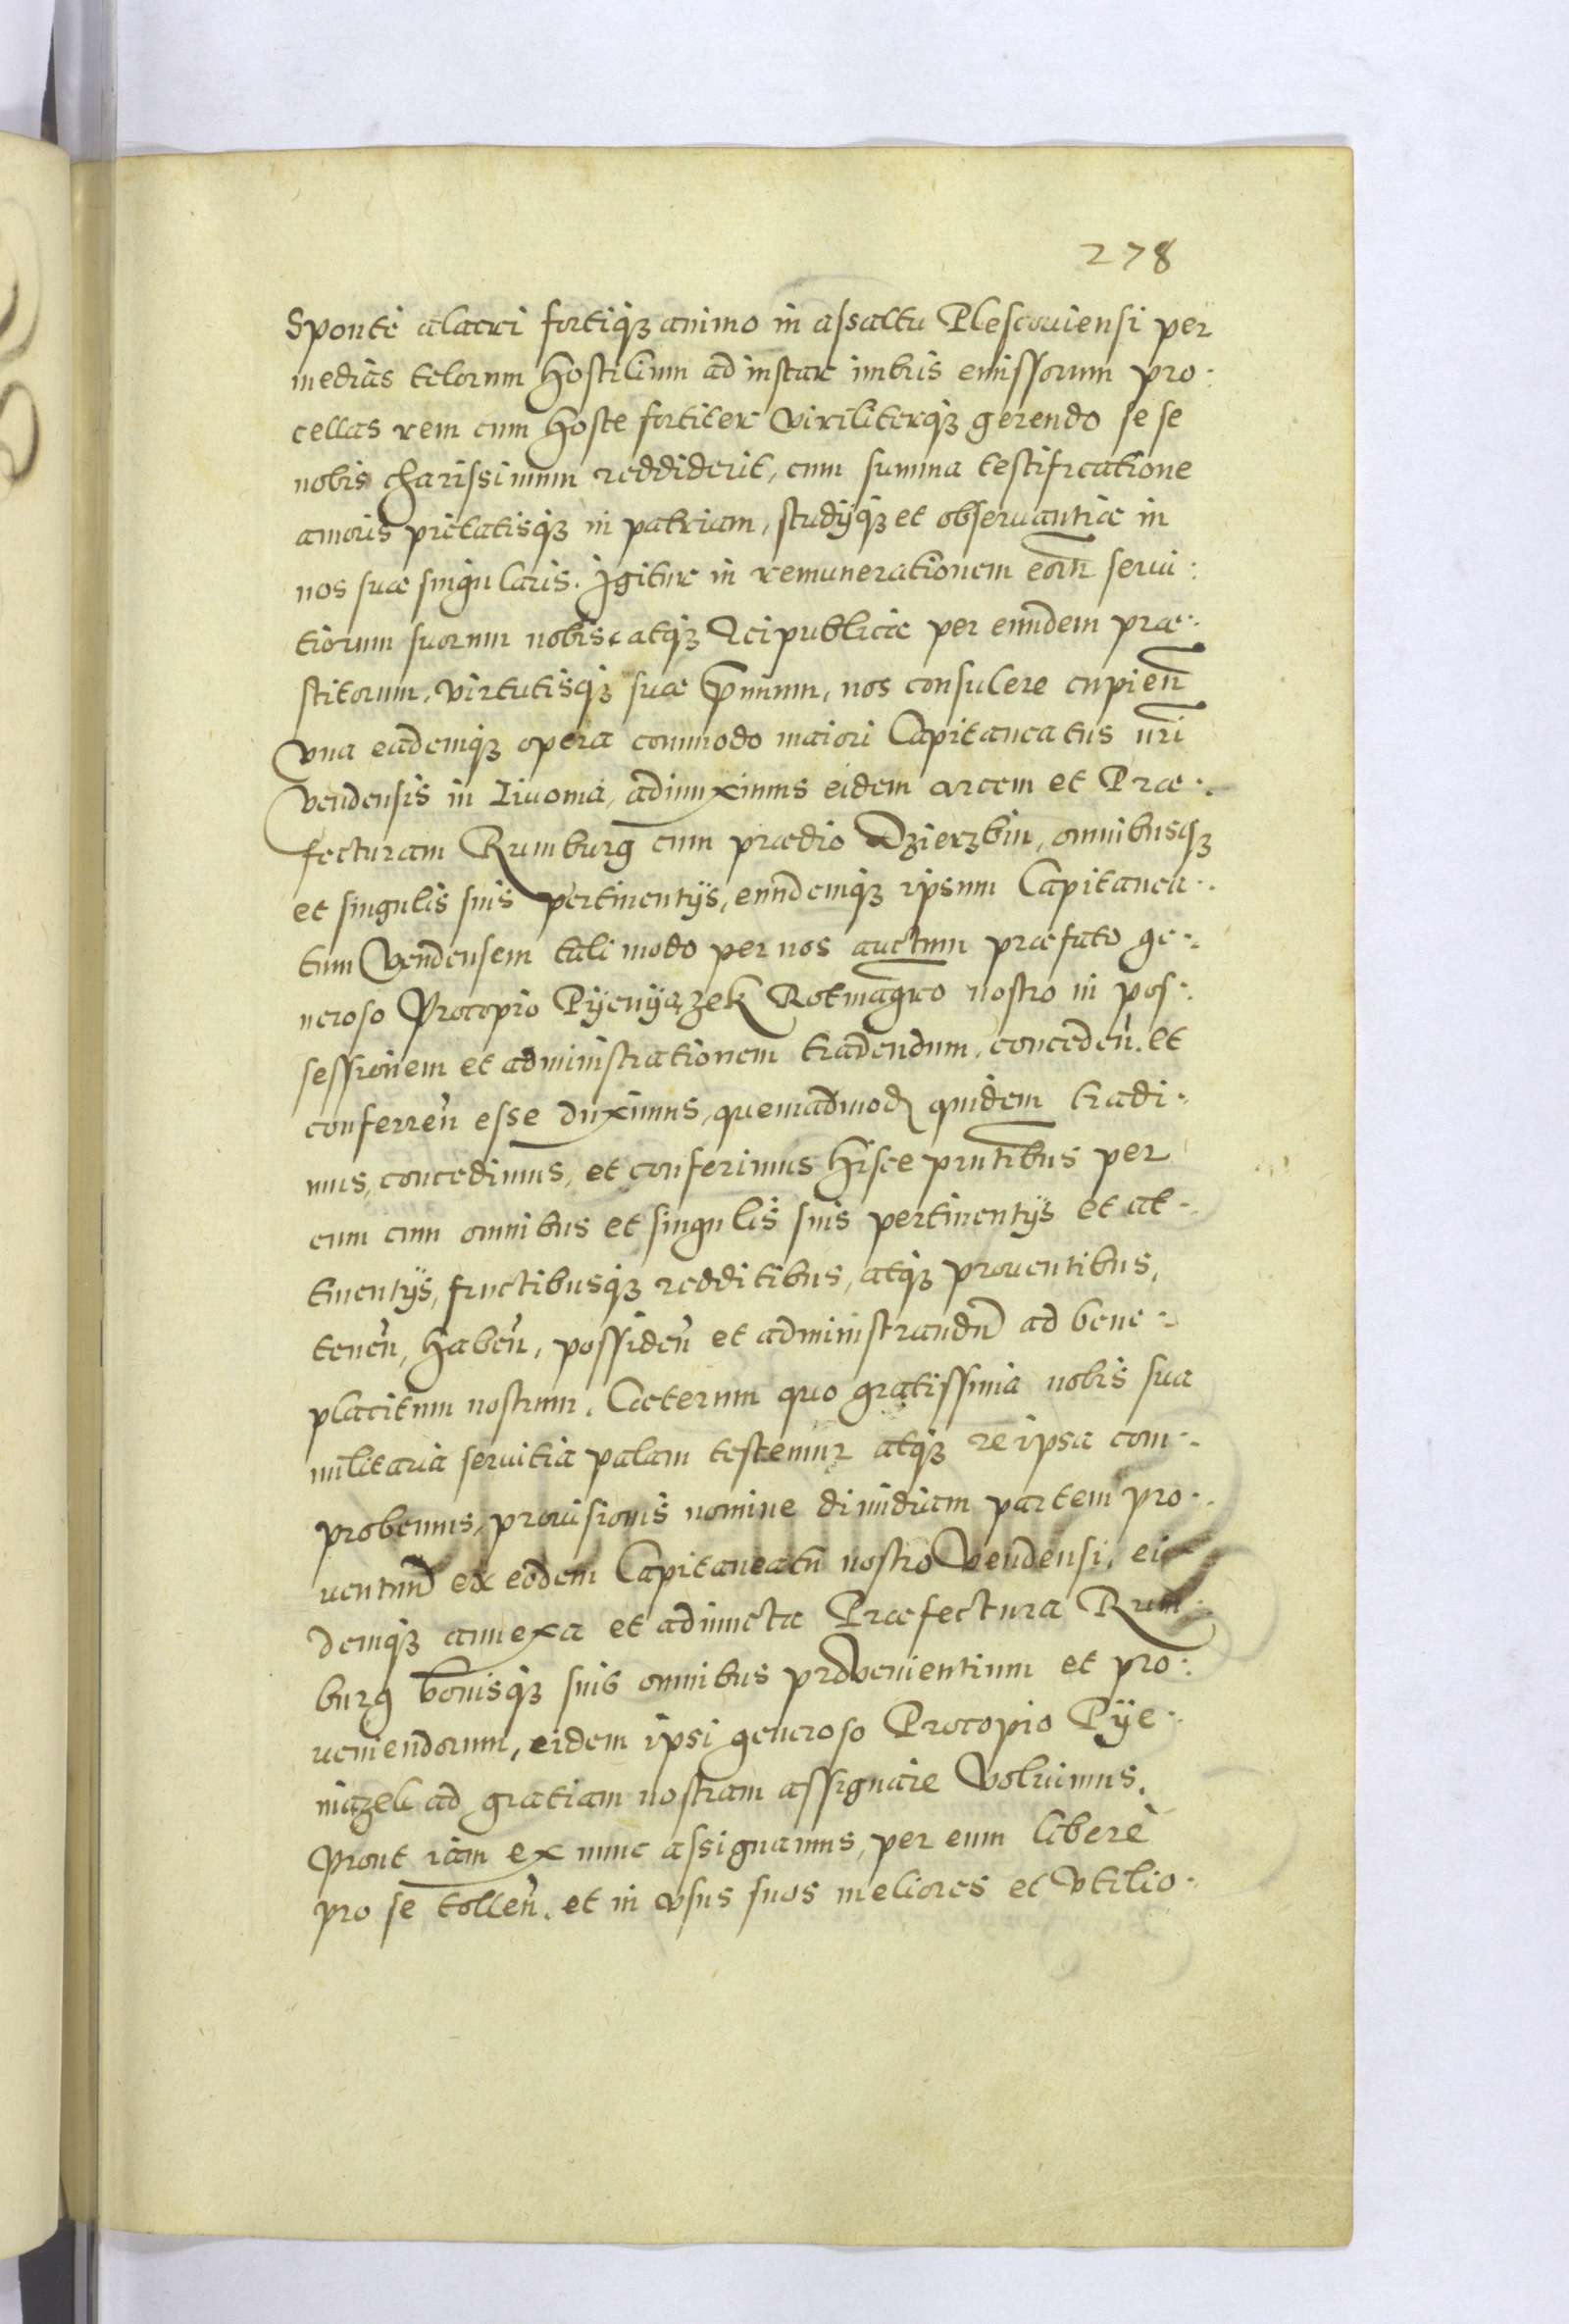 278
Sponte alacri fortiq́ʒ animo in assaltu Plescouiensi per
medias telorum hostilium ad instar imbris emissorum pro:
cellas rem cum hoste fortiter viriliterq́ʒ gerendo se se
nobis charissimum reddiderit, cum summa testificatione
amoris pietatisq́ʒ in patriam, studijq́ʒ et obseruantiæ in
nos suæ singularis. Igitur in remunerationem eoru̅ serui:
tiorum suorum nobis atq́ʒ Reipublicæ per eundem præ:
stitorum, virtutisq́ʒ suæ p̅mium, nos consulere cupien̅
vna eademq́ʒ opera commodo maiori Capitaneatus nr̅i
Vendensis in Livonia, adiunximus eidem arcem et Præ:
fecturam Rumburg cum prædio Dzierzbin, omnibusq́ʒ
et singulis suis pertinentijs, eundemq́ʒ ipsum Capitanea:
tum Vendensem tali modo per nos auctum præfato ge:
neroso Procopio Pijenijązek Rotmagr̅o nostro in pos:
sessionem et administrationem tradendum, conceden̅. et
conferren̅ esse duximus, quemadmod quidem tradi:
mus, concedimus, et conferimus hisce pn̅tibus per
eum cum omnibus et singulis suis pertinentijs et at:
tinentijs, fructibusq́ʒ redditibus, atq́ʒ prouentibus,
tenen̅, haben̅, possiden̅ et administrandu̅ ad bene:
placitum nostrum. Cæterum quo gratissima nobis sua
militaria seruitia palam testemur atq́ʒ re ipsa com:
probemus, prouisionis nomine dimidiam partem pro:
uentuu̅ ex eodem Capitaneatu̅ nostro Vendensi, ei
demq́ʒ annexa et adiuncta Præfectura Rum:
burg bonisq́ʒ suis omnibus provenientium et pro:
ueniendorum, eidem ipsi generoso Procopio Pije:
niązek ad gratiam nostram assignare voluimus.
Prout iam ex nunc assignamus, per eum liberè
pro se tollen̅. et in vsus suos meliores et vtilio: